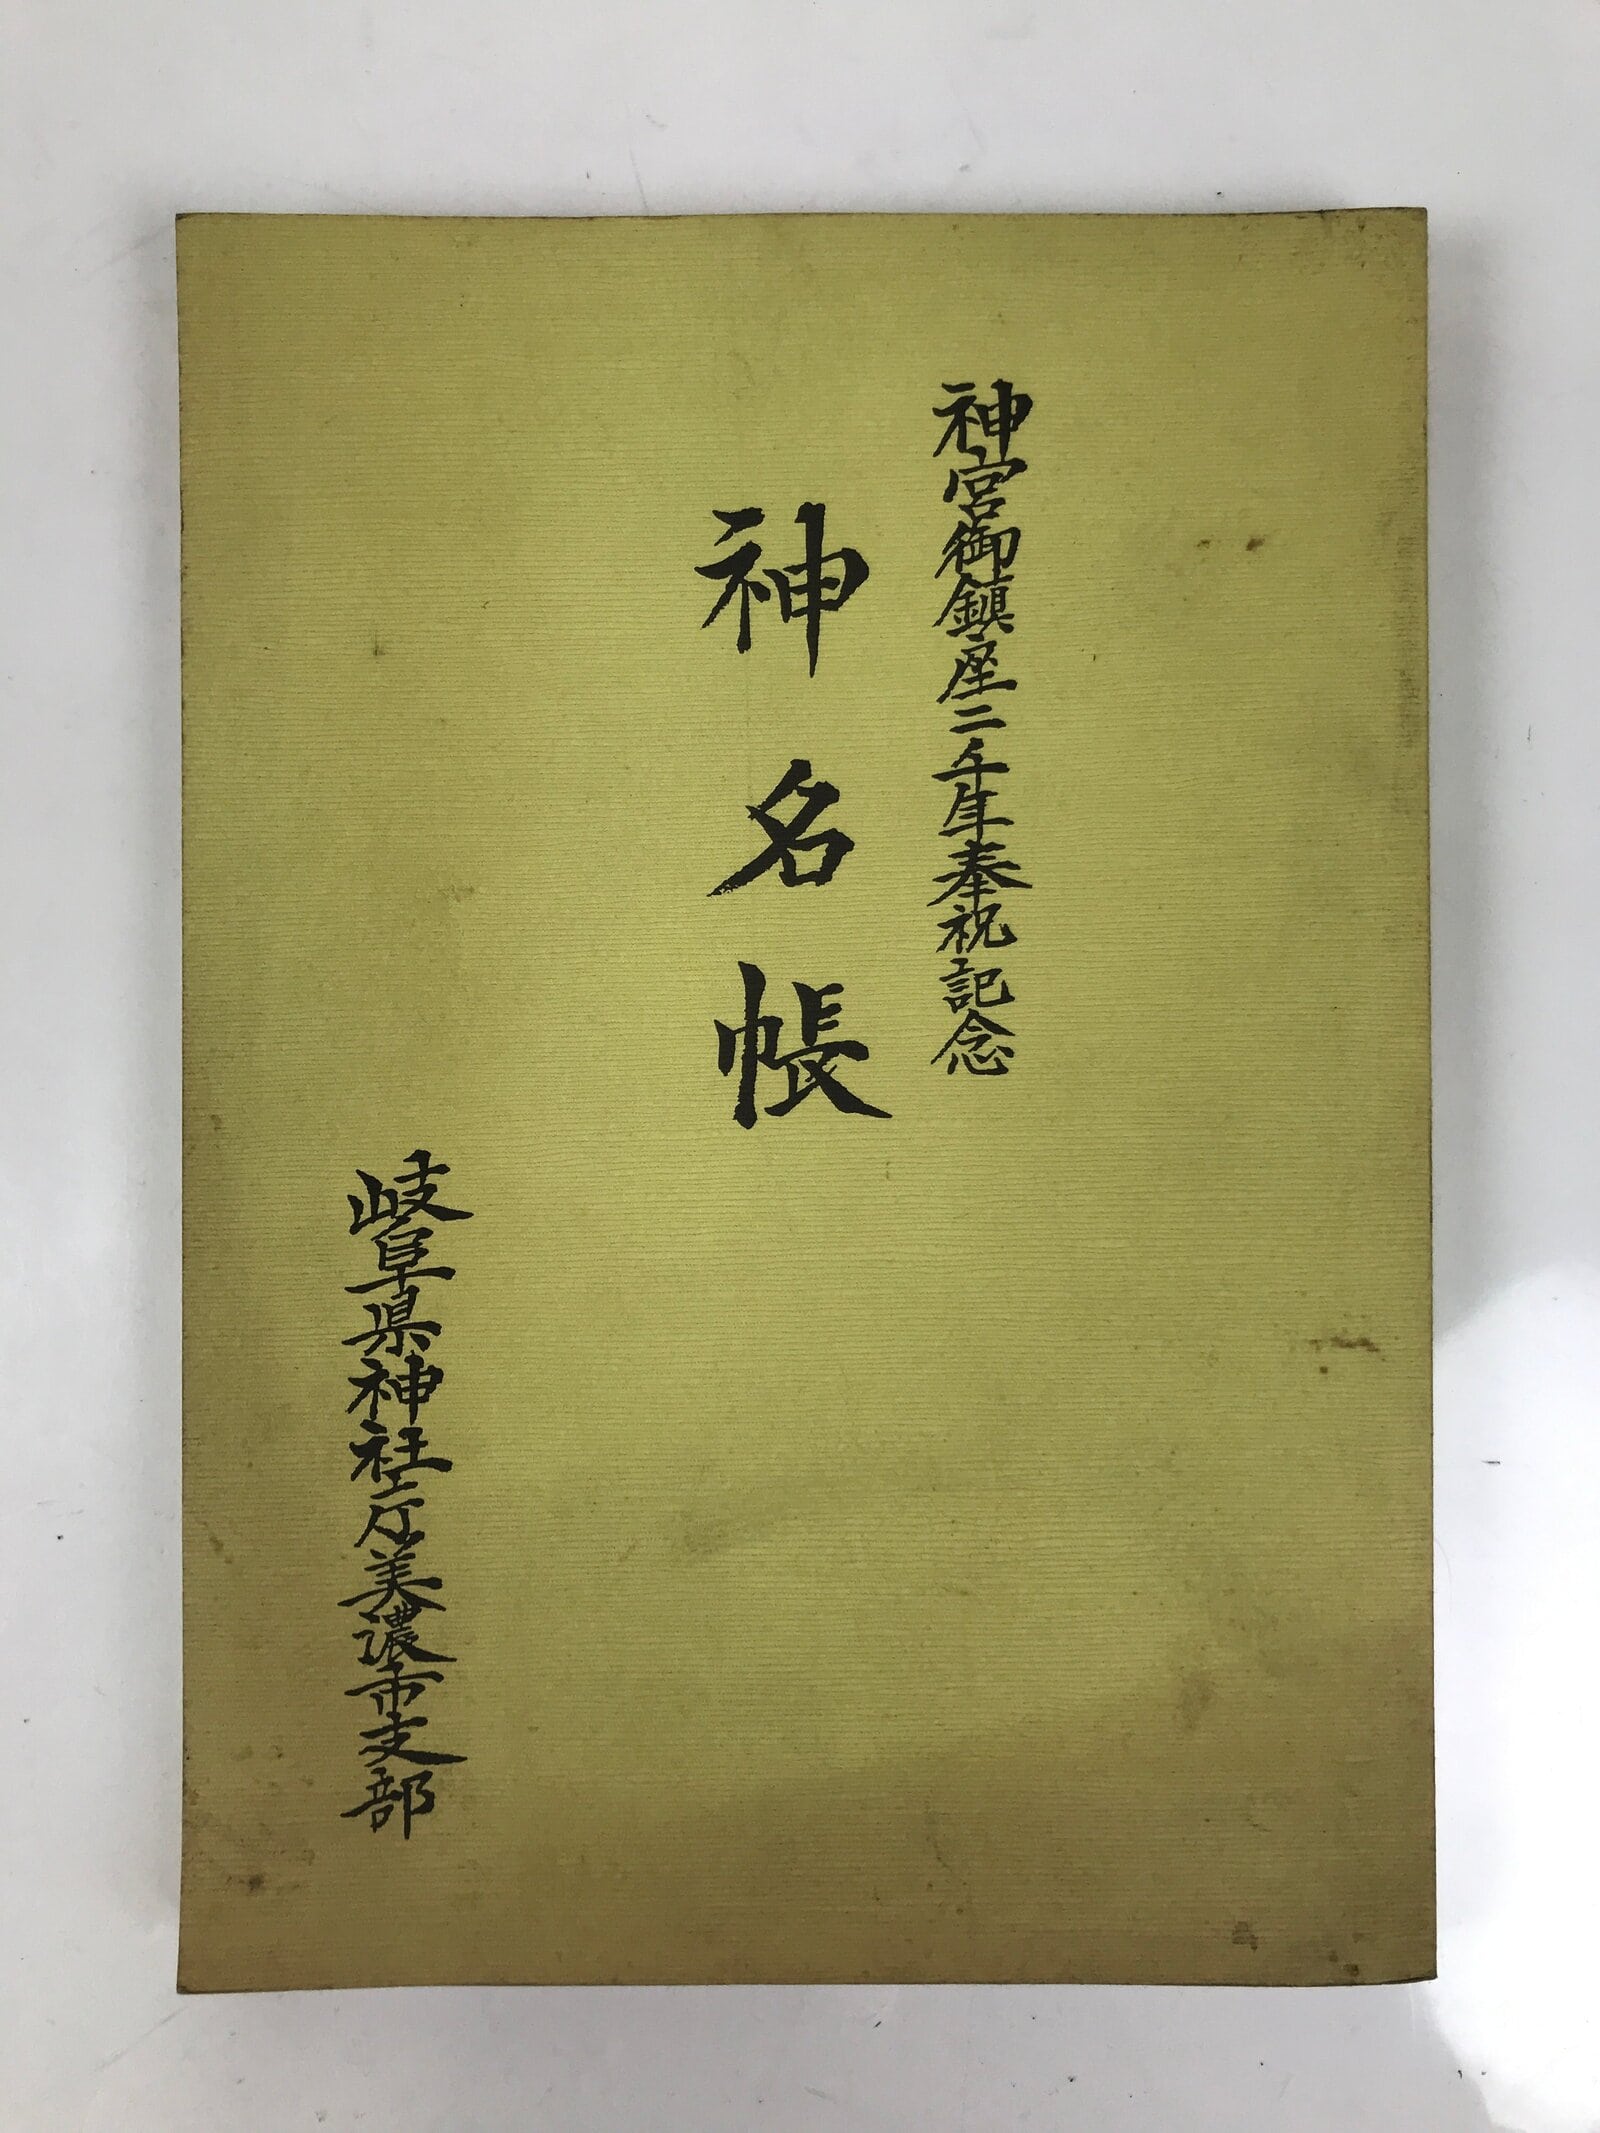 神宮御鎮座二千年奉祝記念
神名帳
岐阜県神社庁美濃市支部